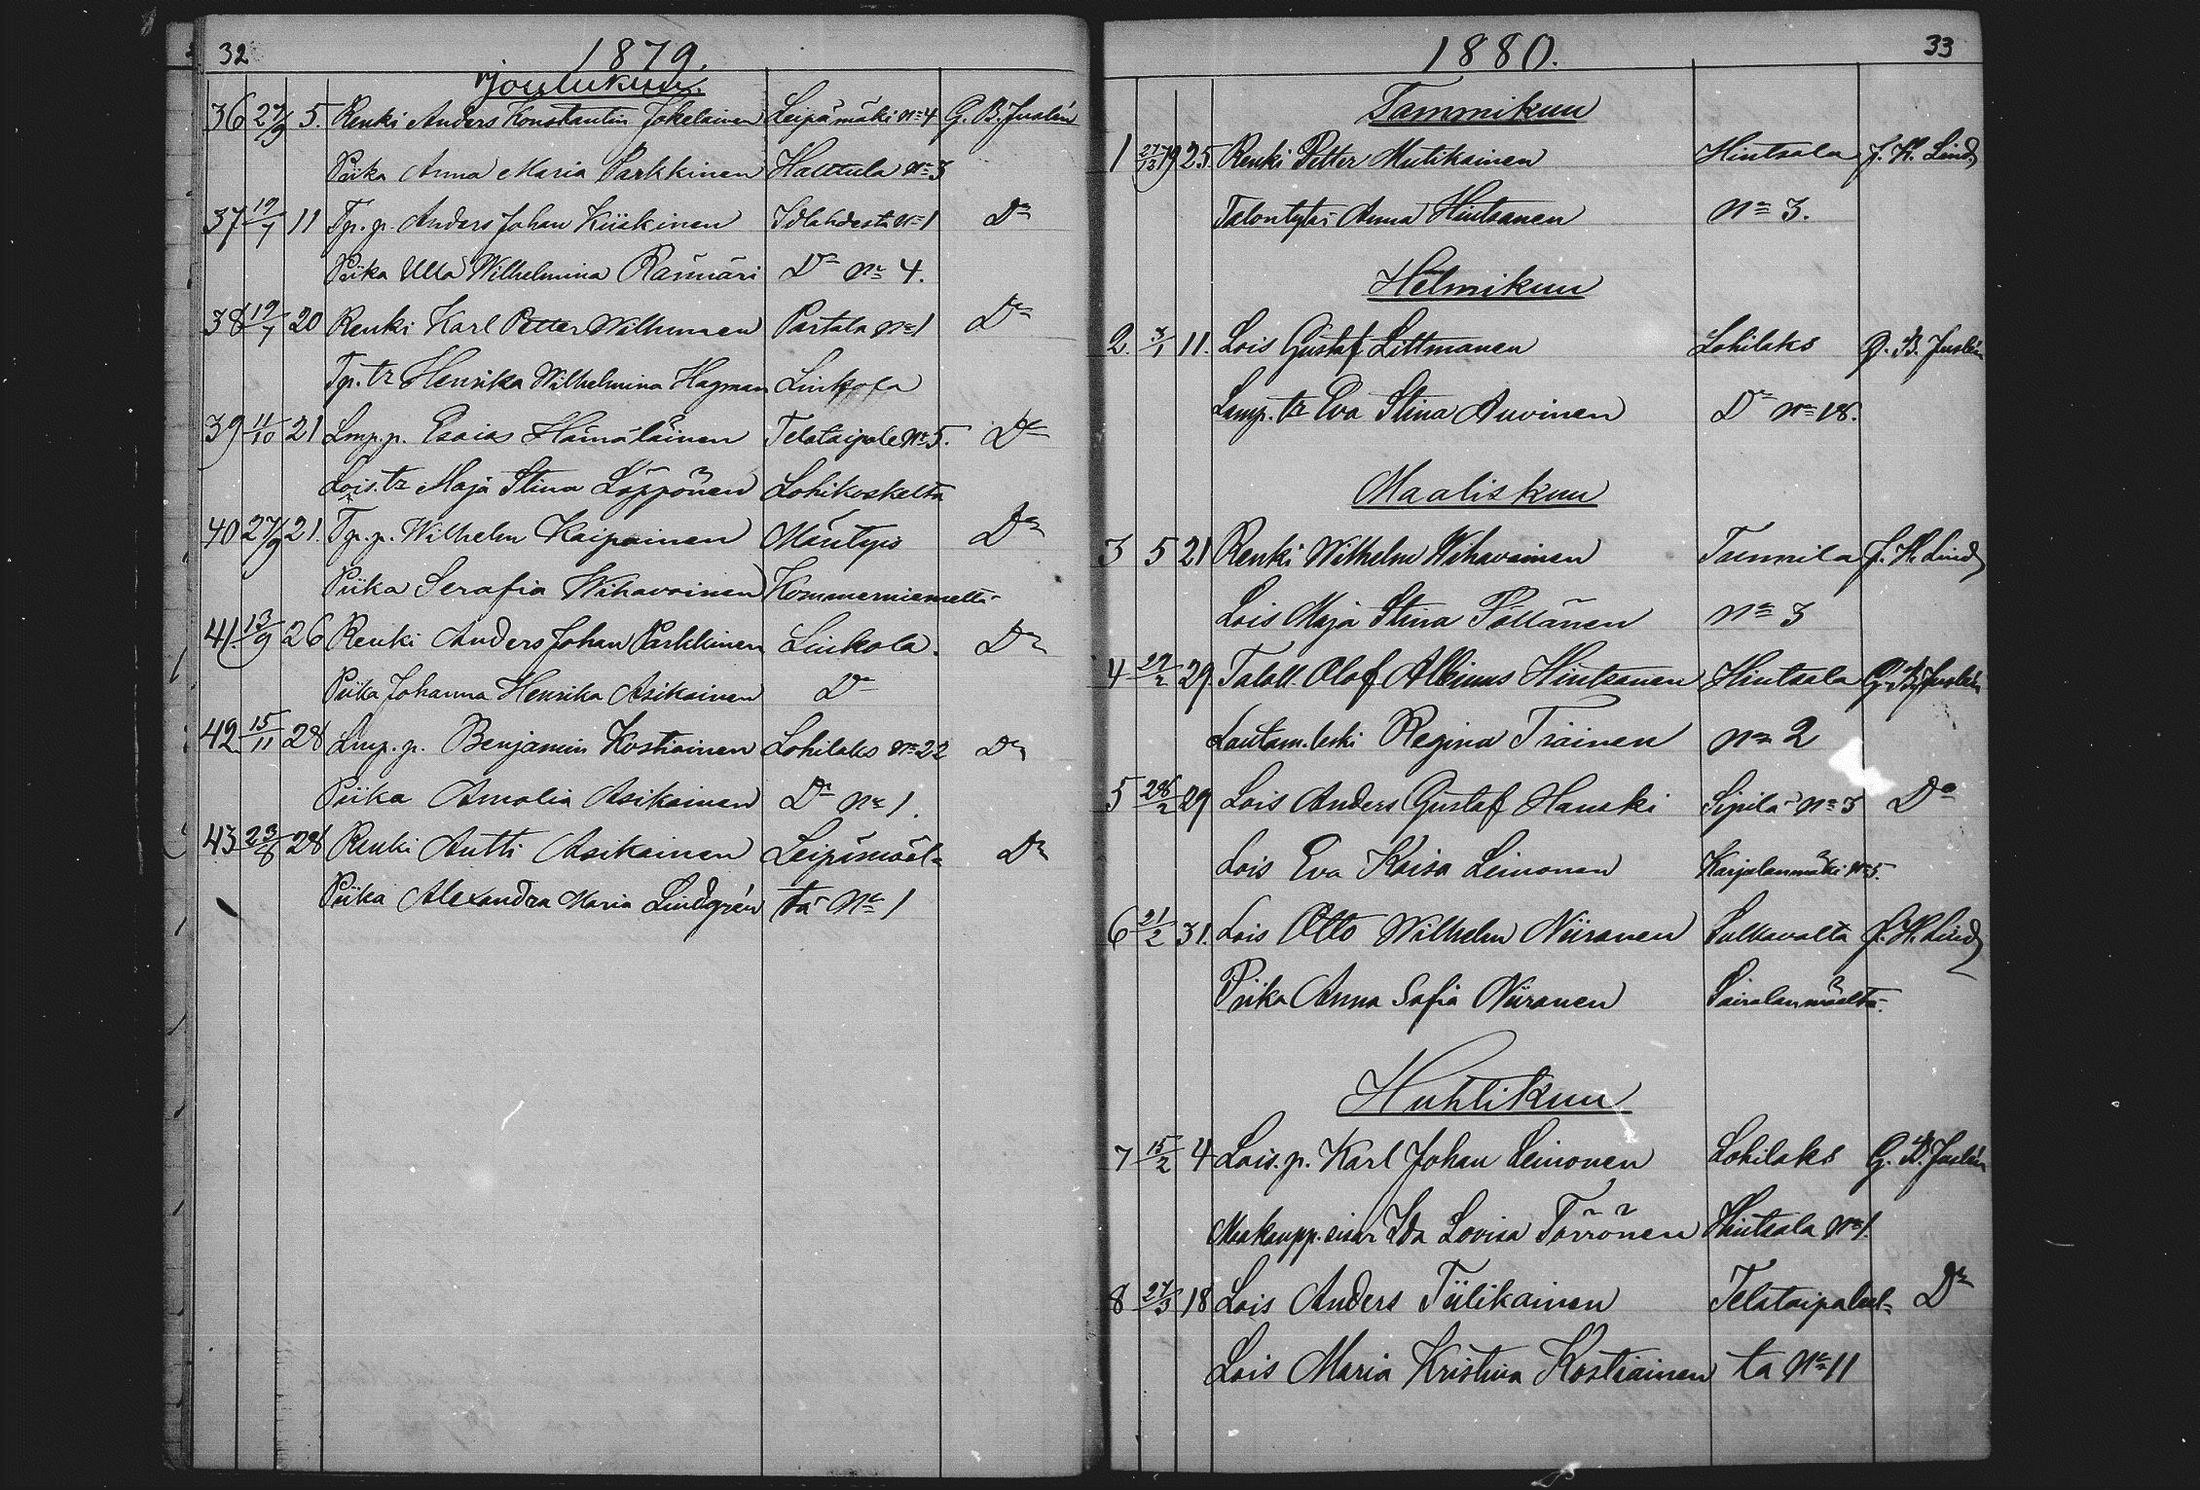 32
1879.
Joulukuu.
36 27/9 5. Renki Anders Konstantin Jokelainen Leipämäki No 4 G. B. Juslén
Piika Anna Maria Parkkinen Halttula No 3
37 19/7 11 Tp. p. Anders Johan Kiiskinen Idlahdesta No 1 Do
Piika Ulla Wilhelmina Räsinäri Do No 4.
38 19/7 20 Renki Karl Petter Wilhunen Partala No 1 Do
Tp. tr Henrika Wilhelmina Hagman Linkola
39 11/10 21 Lmp. p. Esaias Hämäläinen Telataipale No 5. Do
Lois. tr Maja Stina Löppönen Lohikoskelta
40 27/9 21. Tp. p. Wilhelm Kaipainen Mäntyis Do
Piika Serafia Wihavainen Kommerniemeltä
41. 13/9 26 Renki Anders Johan Parkkinen Linkola. Do
Piika Johanna Henrika Asikainen Do
42 15/11 28 Lmp. p. Benjamin Kostiainen Lohilaks No 22 Do
Piika Amalia Asikainen Do No 1.
43 23/8 28 Renki Antti Asikainen Leipämäel- Do
Piika Alexandra Maria Lindgrén tä No 1
1880.
33
Tammikuu
1 27/12 79 25. Renki Petter Mutikainen Hintsala J. H. Lind
Talontytär Anna Hintsanen No 3.
Helmikuu
2. 3/1 11. Lois Gustaf Littmanen Lohilaks G. B. Juslén
Lamp. tr Eva Stina Auvinen Do No 18.
Maaliskuu
3 5 21 Renki Wilhelm Wihavainen Tammila J. H. Lind
Lois Maja Stina Pöllänen No 3
4 29/2 29. Talall. Olof Albinus Hintsanen Hintsala G. B. Juslén
Lautam. leski Regina Tiainen No 2
5 28/2 29 Lois Anders Gustaf Hanski Sipilä No 3 Do
Lois Eva Kaisa Leinonen Karjalanmäki No 5.
6 21/2 31. Lois Otto Wilhelm Niiranen Sulkavalta J. H. Lind
Piika Anna Sofia Niiranen Pairalanmäeltä.
Huhtikuu
7 15/2 4 Lois. p. Karl Johan Leinonen Lohilaks G. B. Juslén
Maakaupp. sisar Ida Lovisa Törrönen Hintsala No 1.
8 27/3 18 Lois Anders Tiilikainen Telataipaleel- Do
Lois Maria Kristina Kostiainen ta No 11